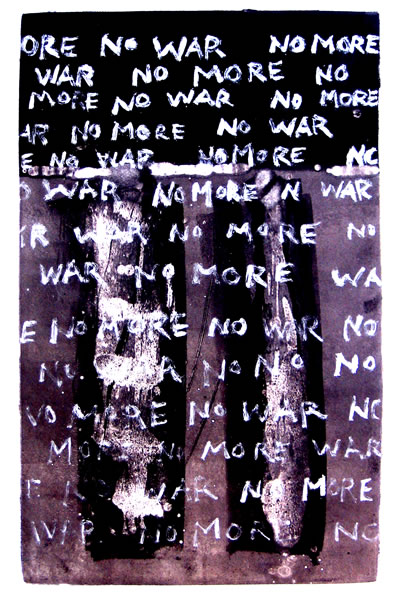 ORE NO WAR NO MORE
WAR NO MORE NO
MORE NO WAR NO MORE
AR NO MORE NO WAR
E NO WAR NO MORE NO
O WAR NO MORE N WAR
WAR NO MORE NO
WAR NO MORE WA
E NO MORE NO WAR NO
NO NO NO NO
NO MORE NO WAR NO
MO NO MORE WAR
E NO WAR NO MORE
WAR NO MORE NO